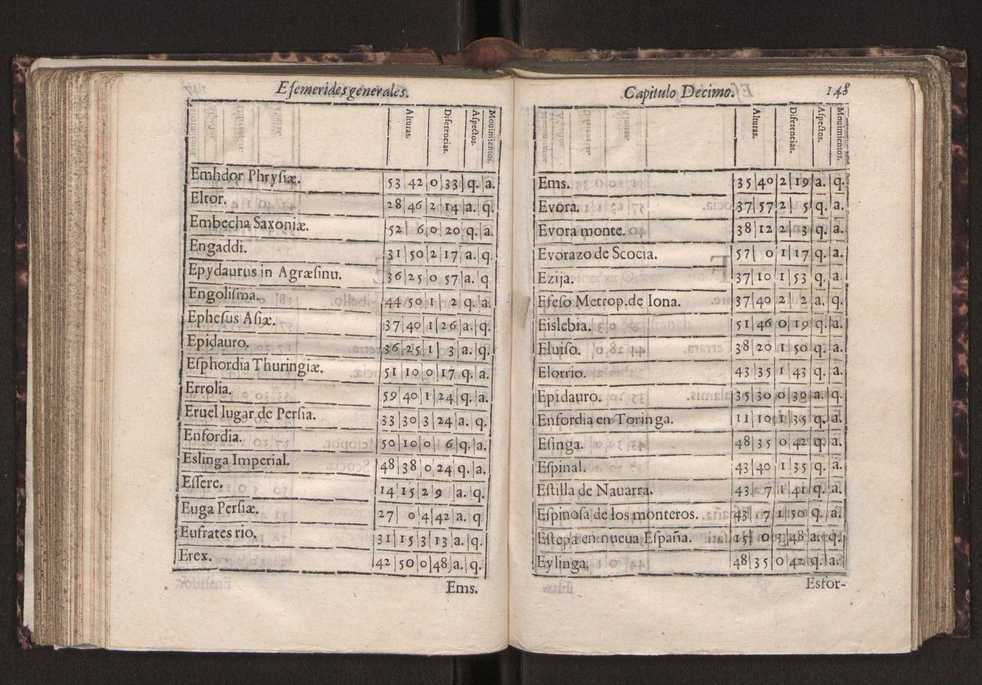 Efemerides generales.
Alturas. Diferencias. Aspectos. Mouimientos.
Emſidor Phryſiæ. 53 42 0 33 q. a.
Eltor. 28 46 2 14 a. q.
Embecha Saxoniæ. 52 6 0 20 q. a.
Engaddi. 31 50 2 17 a. q.
Epydaurus in Agræſinu. 36 25 0 57 a. q.
Engoliſma. 44 50 1 2 q. a.
Epheſus Aſiæ. 37 40 1 26 a. q.
Epidauro. 36 25 1 3 a. q.
Eſphordia Thuringiæ. 51 10 0 17 q. a.
Errolia. 59 40 1 24 q. a.
Eruel lugar de Perſia. 33 30 3 24 a. q.
Enfordia. 50 10 0 6 q. a.
Eslinga Imperial. 48 38 0 24 q. a.
Eſſere. 14 15 2 9 a. q.
Euga Perſiæ. 27 0 4 42 a. q.
Eufrates rio. 31 15 3 13 a. q.
Erex. 42 50 0 48 a. q.
Ems.
Capitulo Decimo. 148
Alturas. Diferencias. Aſpectos. Mouimientos.
Ems. 35 40 2 19 a. q.
Evora. 37 57 2 5 q. a.
Evora monte. 38 12 2 3 q. a.
Evorazo de Scocia. 57 0 1 17 q. a.
Ezija. 37 10 1 53 q. a.
Efeſo Metrop. de Iona. 37 40 2 2 a. q.
Eislebia. 51 46 0 19 q. a.
Eluiſo. 38 20 1 50 q. a.
Elorrio. 43 35 1 43 q. a.
Epidauro. 35 30 0 30 a. q.
Enfordia en Toringa. 11 10 1 35 q. a.
Eſinga. 48 35 0 42 q. a.
Eſpinal. 43 40 1 35 q. a.
Eſtilla de Nauarra. 43 7 1 41 q. a.
Eſpinoſa de los monteros. 43 7 1 50 q. a.
Eſtepa en nueua Eſpaña. 15 0 3 48 a. q.
Eylinga. 48 35 0 42 q. a.
Esfor-